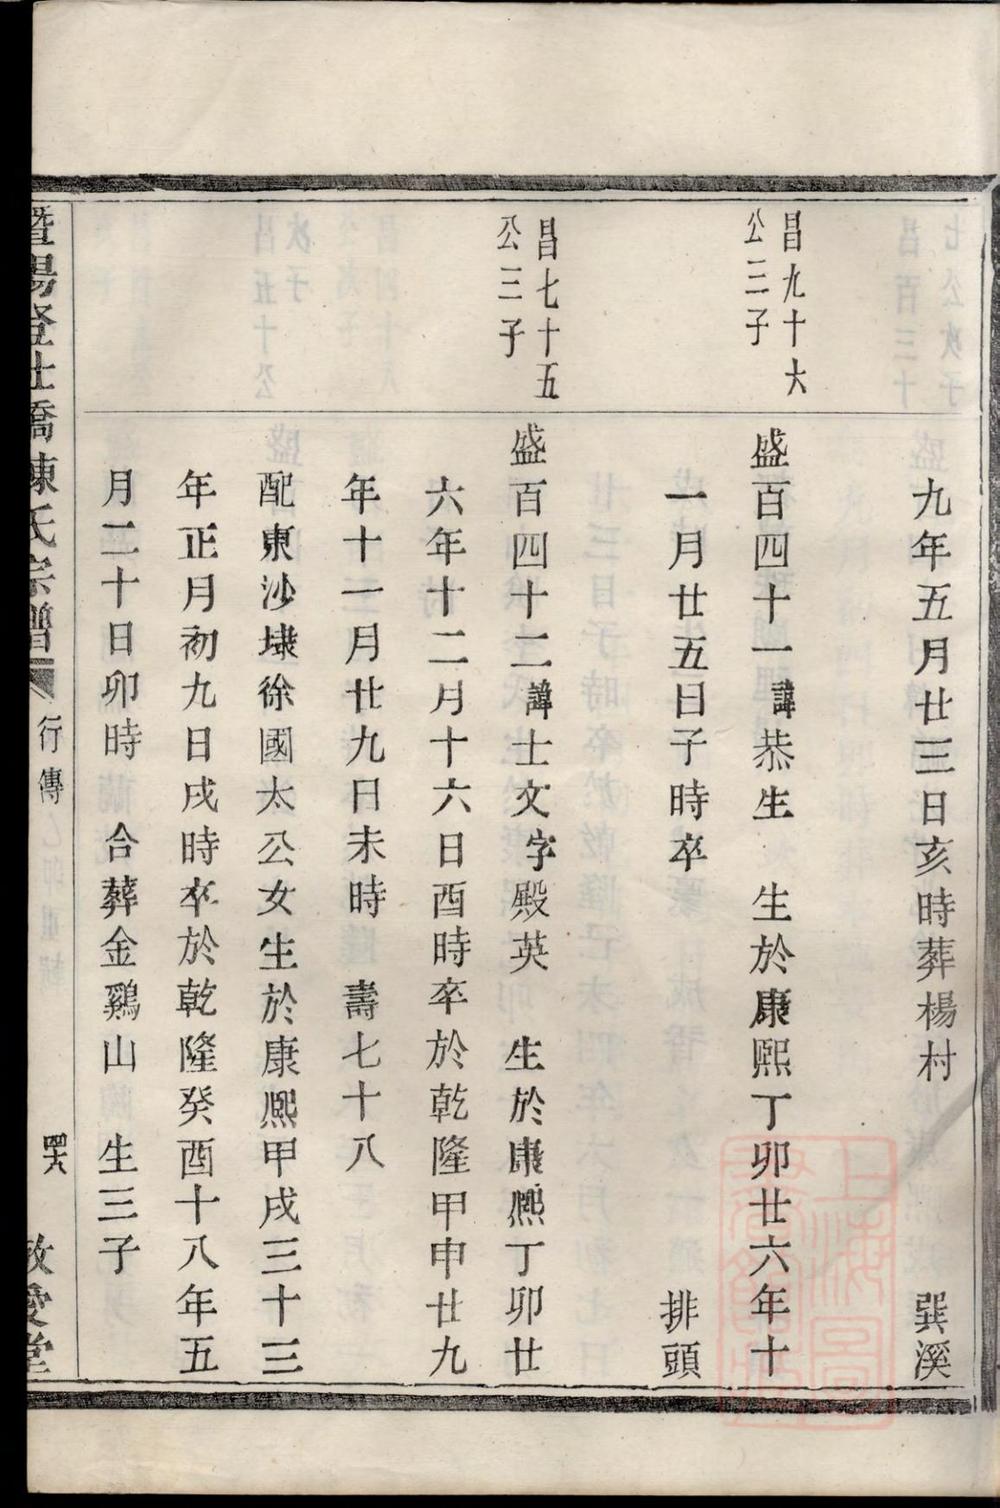 九年五月廿三日亥時葬楊村　巽溪
昌九十六
公二子
盛百四十一諱恭生　生於康熙丁卯廿六年十
一月廿五日子時卒　排頭
昌七十五
公三子
盛百四十二諱士文字殿英　生於康熙丁卯廿
六年十二月十六日酉時卒於乾隆甲申廿九
年十一月廿九日未時　壽七十八
配東沙埭徐國太公女生於康熙甲戌三十三
年正月初九日戌時卒於乾隆癸酉十八年五
月二十日卯時　合葬金鷄山　生三子
暨陽登仕橋陳氏宗譜　行傳　四六　敬愛堂